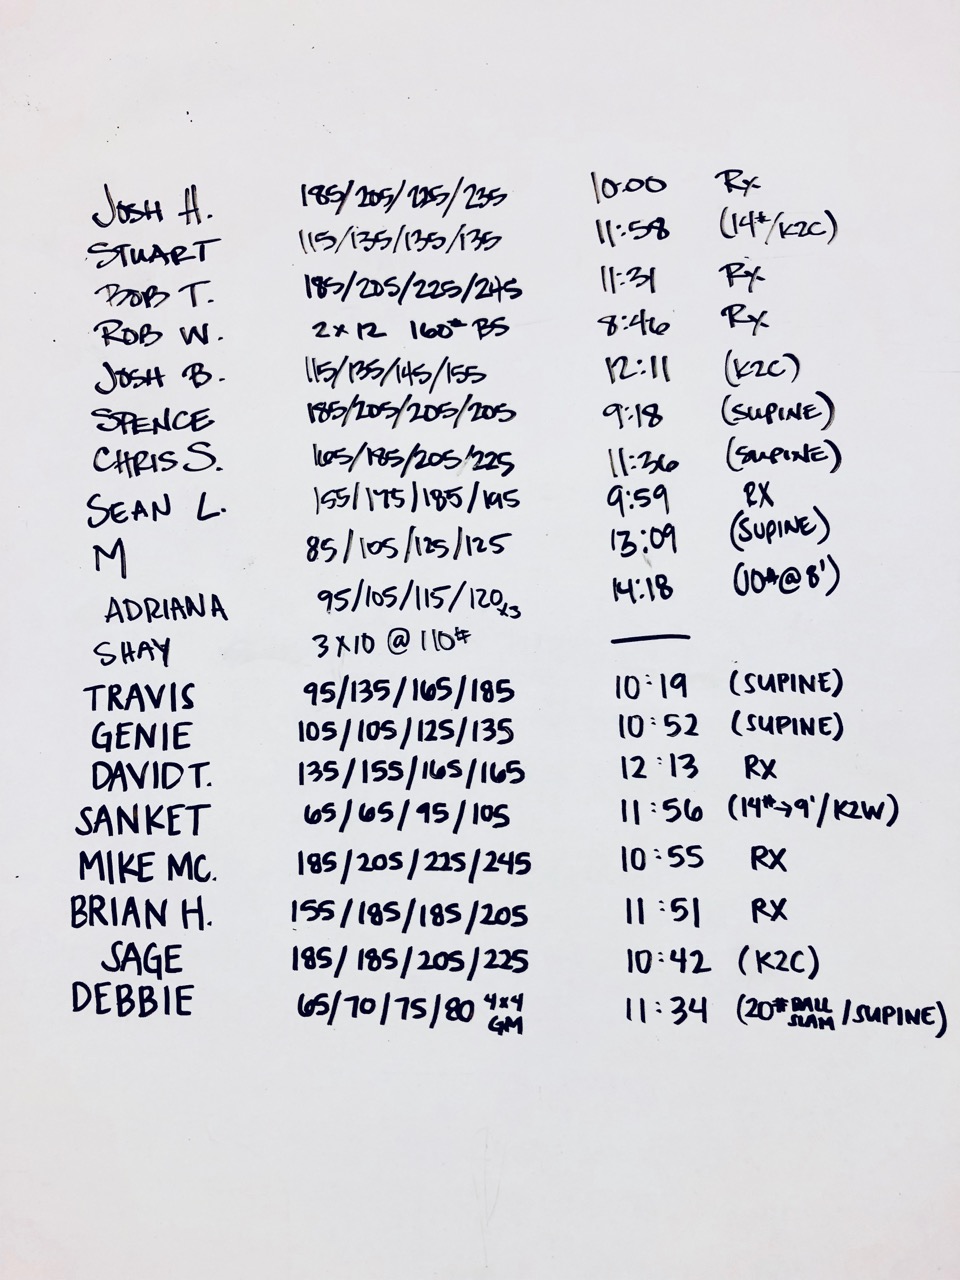 JOSH H. 185/205/225/235 10:00 Rx
STUART 115/135/135/135 11:58 (14#/K2C)
BOB T. 185/205/225/245 11:31 Rx
ROB W. 2x12 160# BS 8:46 Rx
JOSH B. 115/135/145/155 12:11 (K2C)
SPENCE 185/205/205/205 9:18 (SUPINE)
CHRIS S. 165/185/205/225 11:36 (SUPINE)
SEAN L. 155/175/185/195 9:59 RX
M 85/105/125/125 13:09 (SUPINE)
ADRIANA 95/105/115/120x3 14:18 (10#@8')
SHAY 3x10 @ 110# —
TRAVIS 95/135/165/185 10:19 (SUPINE)
GENIE 105/105/125/135 10:52 (SUPINE)
DAVID T. 135/155/165/165 12:13 RX
SANKET 65/65/95/105 11:56 (14#→9'/K2W)
MIKE MC. 185/205/225/245 10:55 RX
BRIAN H. 155/185/185/205 11:51 RX
SAGE 185/185/205/225 10:42 (K2C)
DEBBIE 65/70/75/80 4x4 GM 11:34 (20# BALL SLAM/SUPINE)